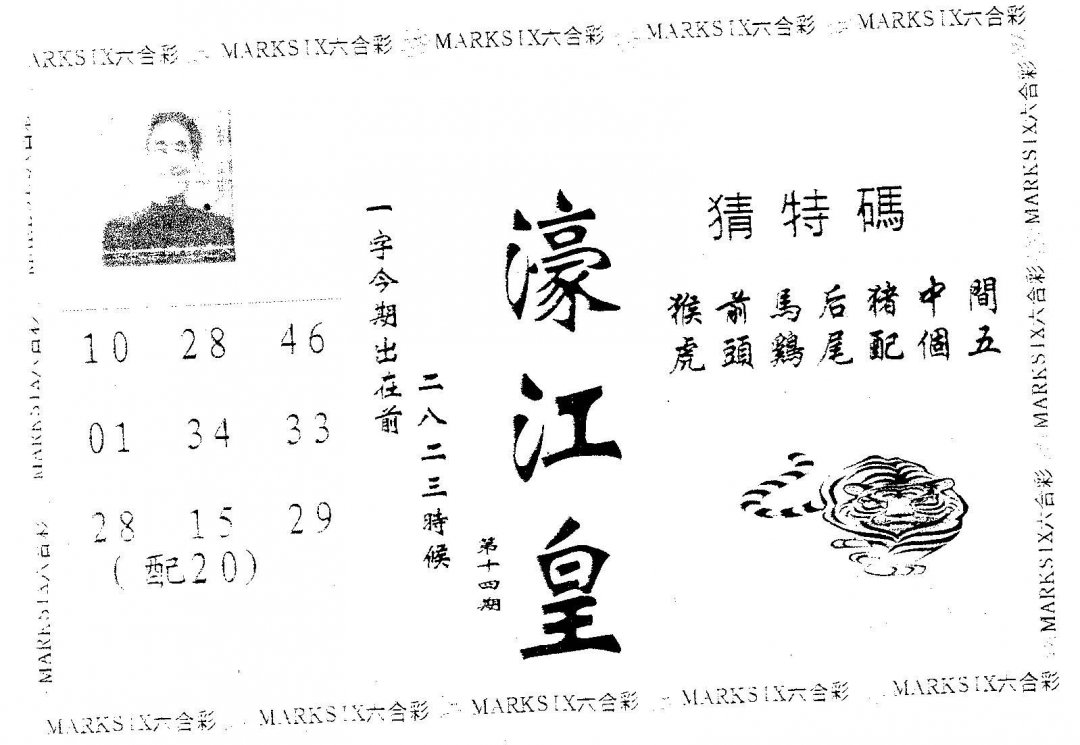 MARKSIX六合彩 MARKSIX六合彩 MARKSIX六合彩 MARKSIX六合彩
猜特碼
猴前馬后豬中間
虎頭鷄尾配個五
濠江皇
第十四期
一字今期出在前
二八二三時候
10 28 46
01 34 33
28 15 29
(配20)
MARKSIX六合彩
MARKSIX六合彩
MARKSIX六合彩
MARKSIX六合彩 MARKSIX六合彩 MARKSIX六合彩 MARKSIX六合彩 MARKSIX六合彩